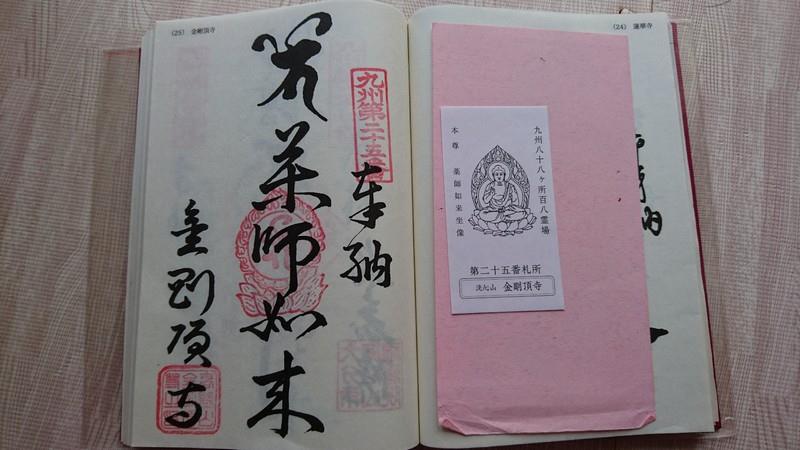 (24) 蓮華寺
九州八十八ヶ所百八霊場
本尊 薬師如来坐像
第二十五番札所
金剛頂寺
(25) 金剛頂寺
九州第二十五番
奉納
薬師如来
金剛頂寺